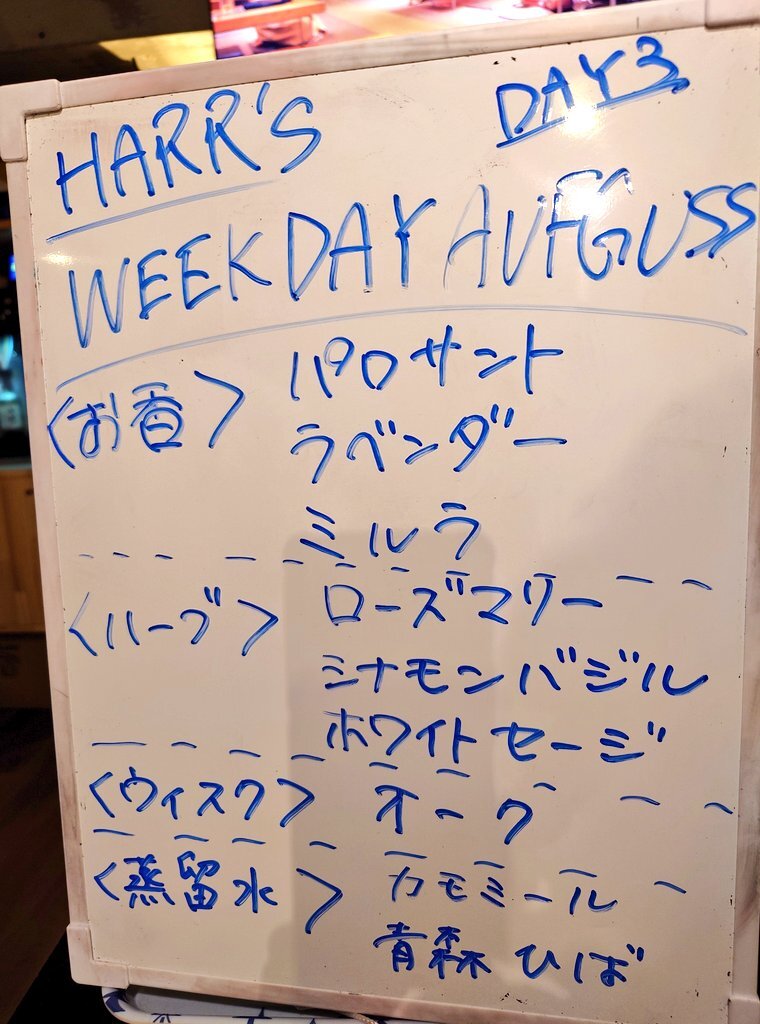 HARR'S DAY3
WEEKDAY AUFGUSS
<お香> パロサント
ラベンダー
ミルラ
<ハーブ> ローズマリー
シナモンバジル
ホワイトセージ
<ウィスク> オーク
<蒸留水> カモミール
青森ひば